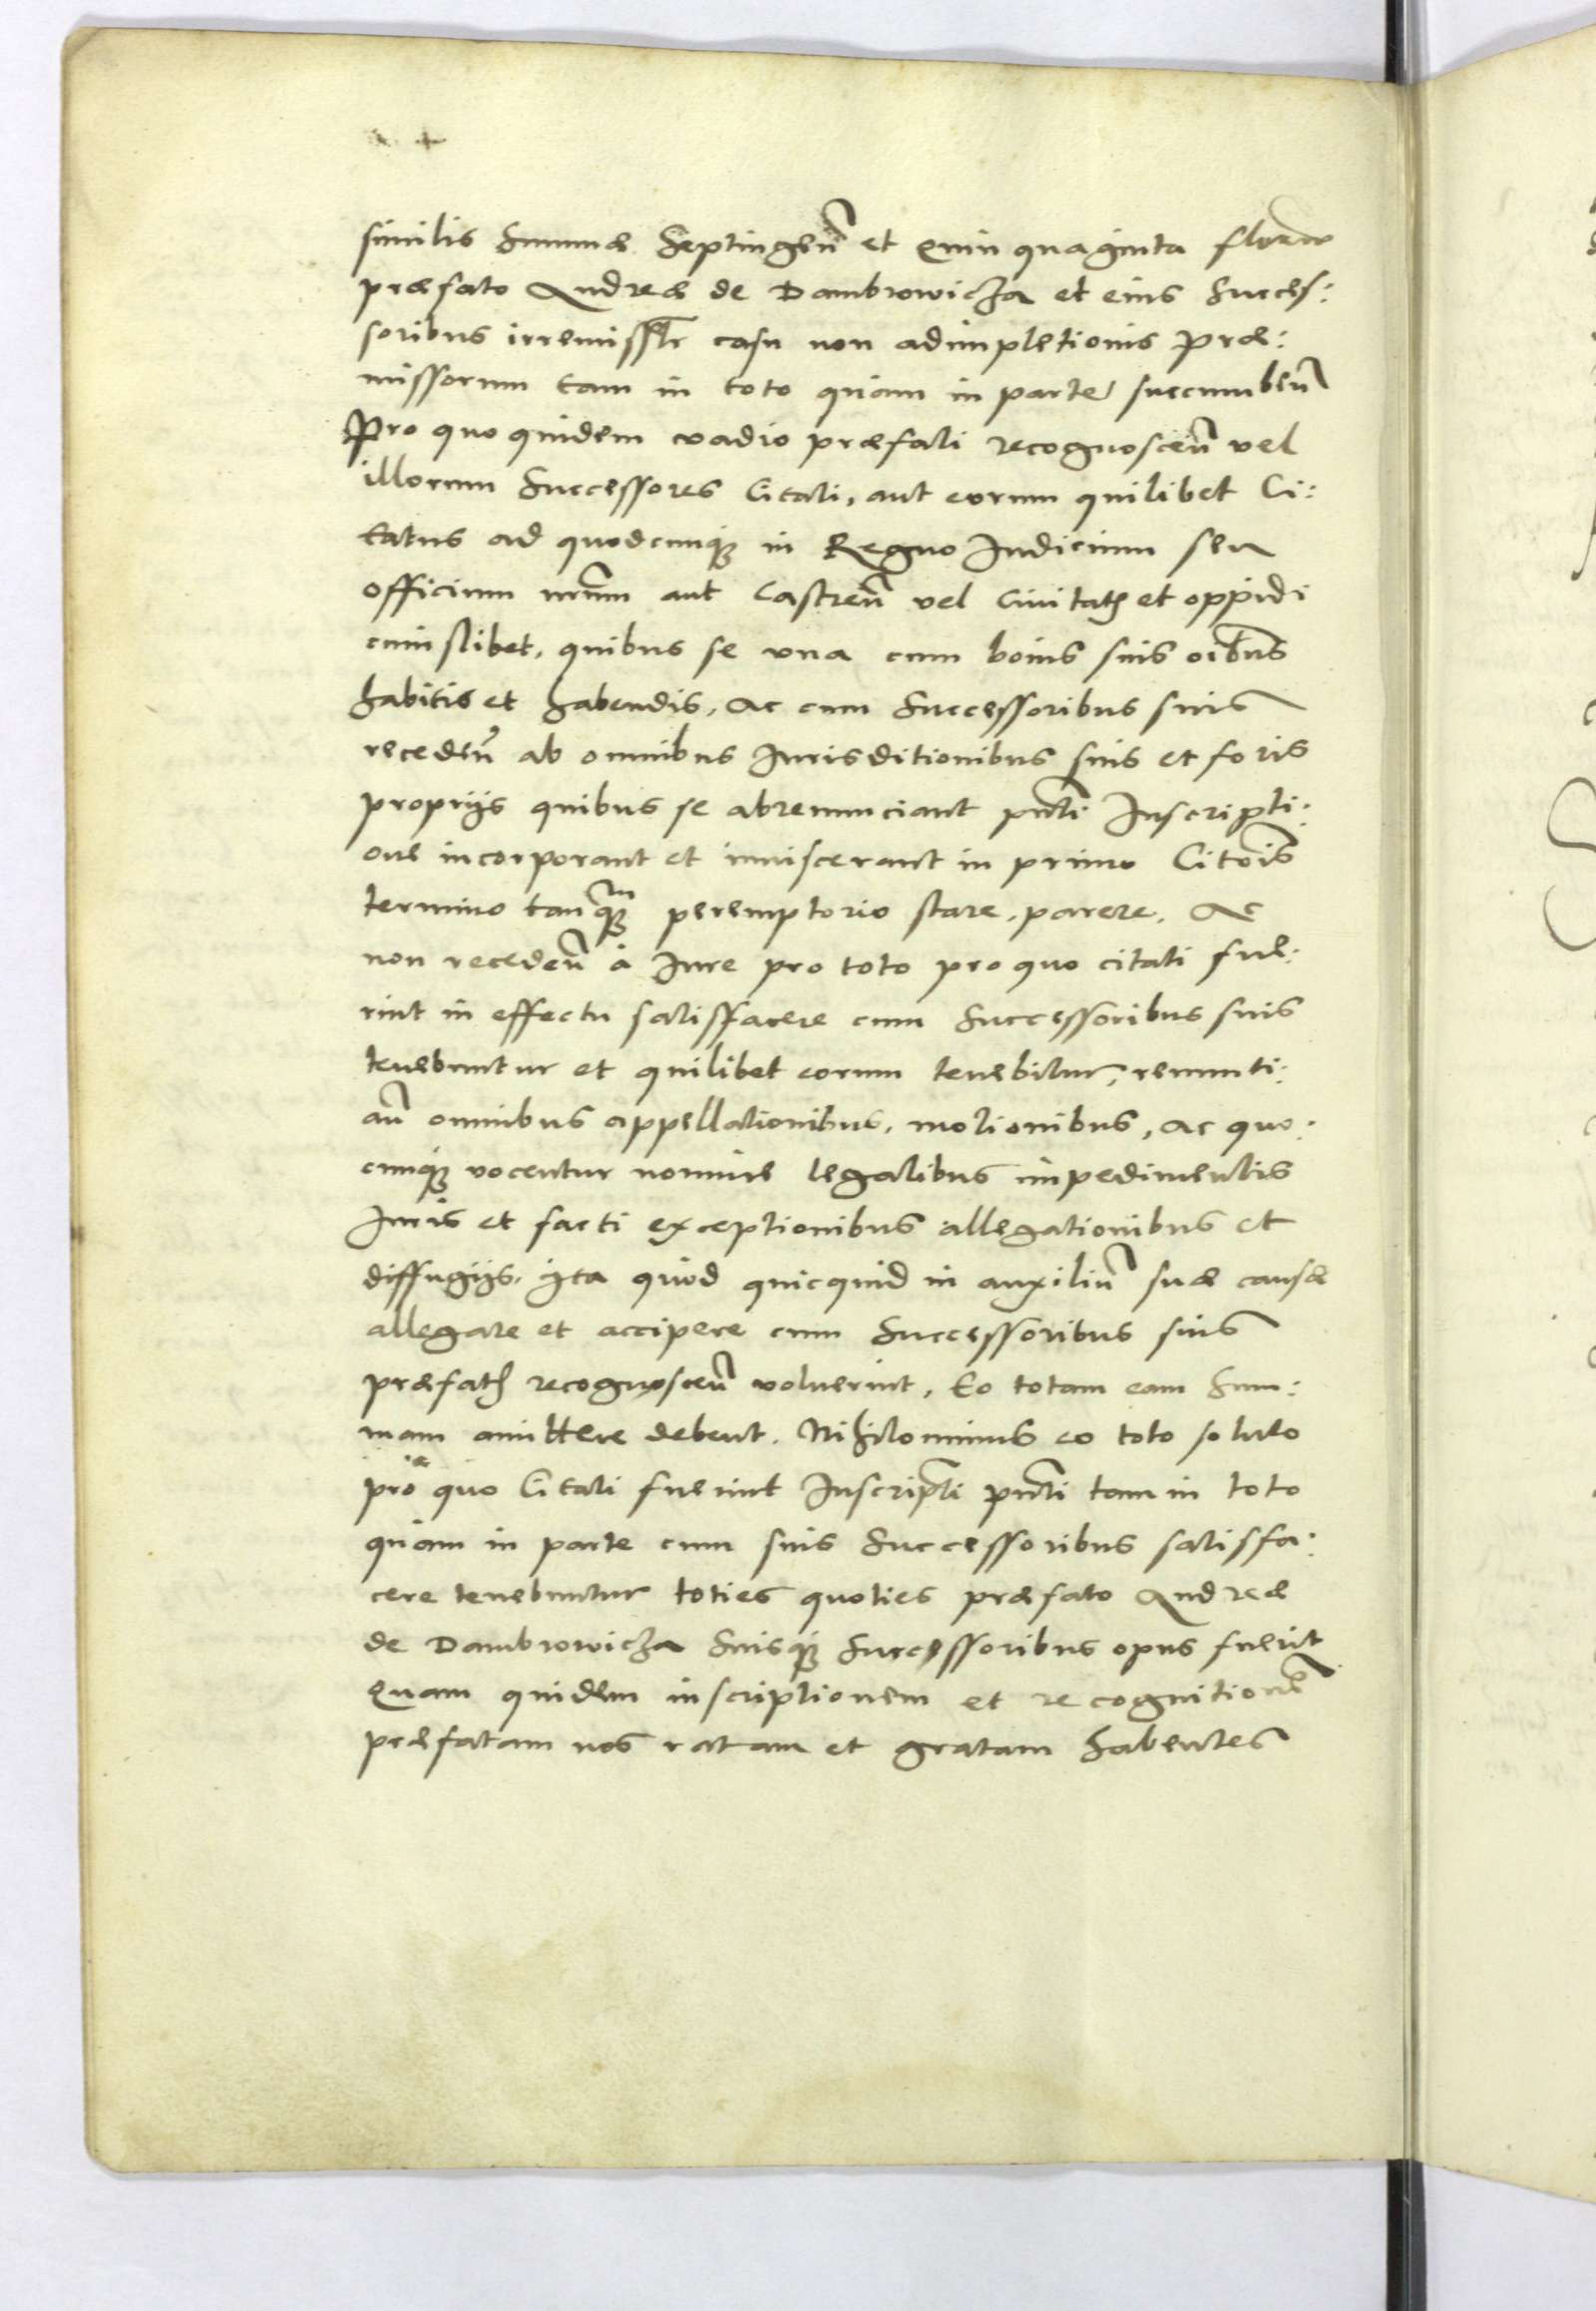 similis Summæ Septingen̄ et Quinquaginta floren̄
præfato Andreæ de Dambrowicza et eius Succes:
soribus irremissblr casu non adimpletionis Præ:
missorum tam in toto quam in parte succumben̄
Pro quo quidem vadio præfati recognoscen̄ vel
illorum Successores Citati, aut eorum quilibet Ci:
tatus ad quodcunq̄ in Regno Iudicium seu
officium nr̄um aut Castren̄ vel Ciuitatis et oppidi
cuiuslibet, quibus se vna cum bonis suis oībus
habitis et habendis, Ac cum Successoribus suis
receden̄ ab omnibus Iurisditionibus suis et foris
proprijs quibus se abrenunciant pn̄ti Inscripti:
one incorporant et inuiscerant in primo Citōis
termino tanq̄m peremptorio stare, parere, Ac
non receden̄ à Iure pro toto pro quo citati fue:
rint in effectu satisfacere cum Successoribus suis
tenebuntur et quilibet eorum tenebitur, renunti:
an̄ omnibus appellationibus, motionibus, Ac quo:
cunq̄ vocentur nomine legalibus impedimentis
Iuris et facti exceptionibus allegationibus et
diffugijs, ita quod quicquid in auxiliū suæ causæ
allegare et accipere cum Successoribus suis
præfatis recognoscen̄ voluerint, Eo totam eam Sum:
mam amittere debent. Nihilominus eo toto soluto
pro quo Citati fuerint Inscripti pn̄ti tam in toto
quam in parte cum suis Successoribus satisfa:
cere tenebuntur toties quoties præfato Andreæ
de Dambrowicza Suisq̄ Successoribus opus fuerit
Quam quidem inscriptionem et recognitionē
præfatam nos ratam et gratam habentes